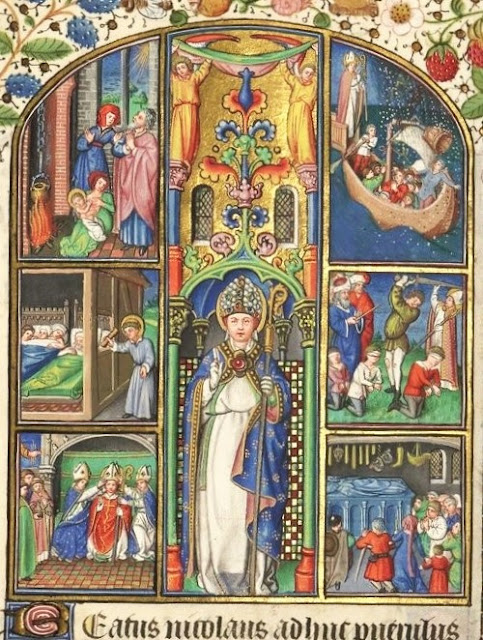 BEatus nicolaus adhuc puerulus